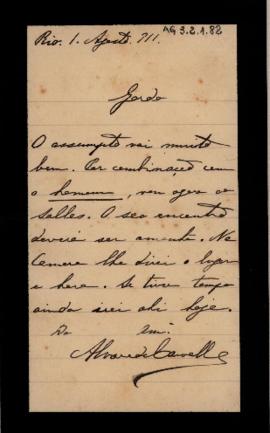 AG 3.2.1.82
Rio. 1. Agosto 911.
Gordo
O assumpto vai muito
bem. Por combinação com
o homem, vou agora ao
Salles. O seo encontro
deverá ser amanhã. Na
Camera lhe direi o lugar
e hora. Se tiver tempo
ainda irei ahi hoje.
Do
Alvaro de Carvalho